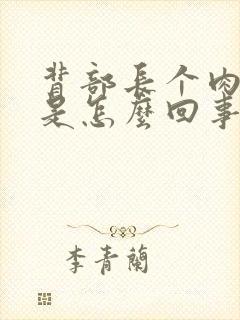 背部長个肉
是怎麽回事
李青蘭